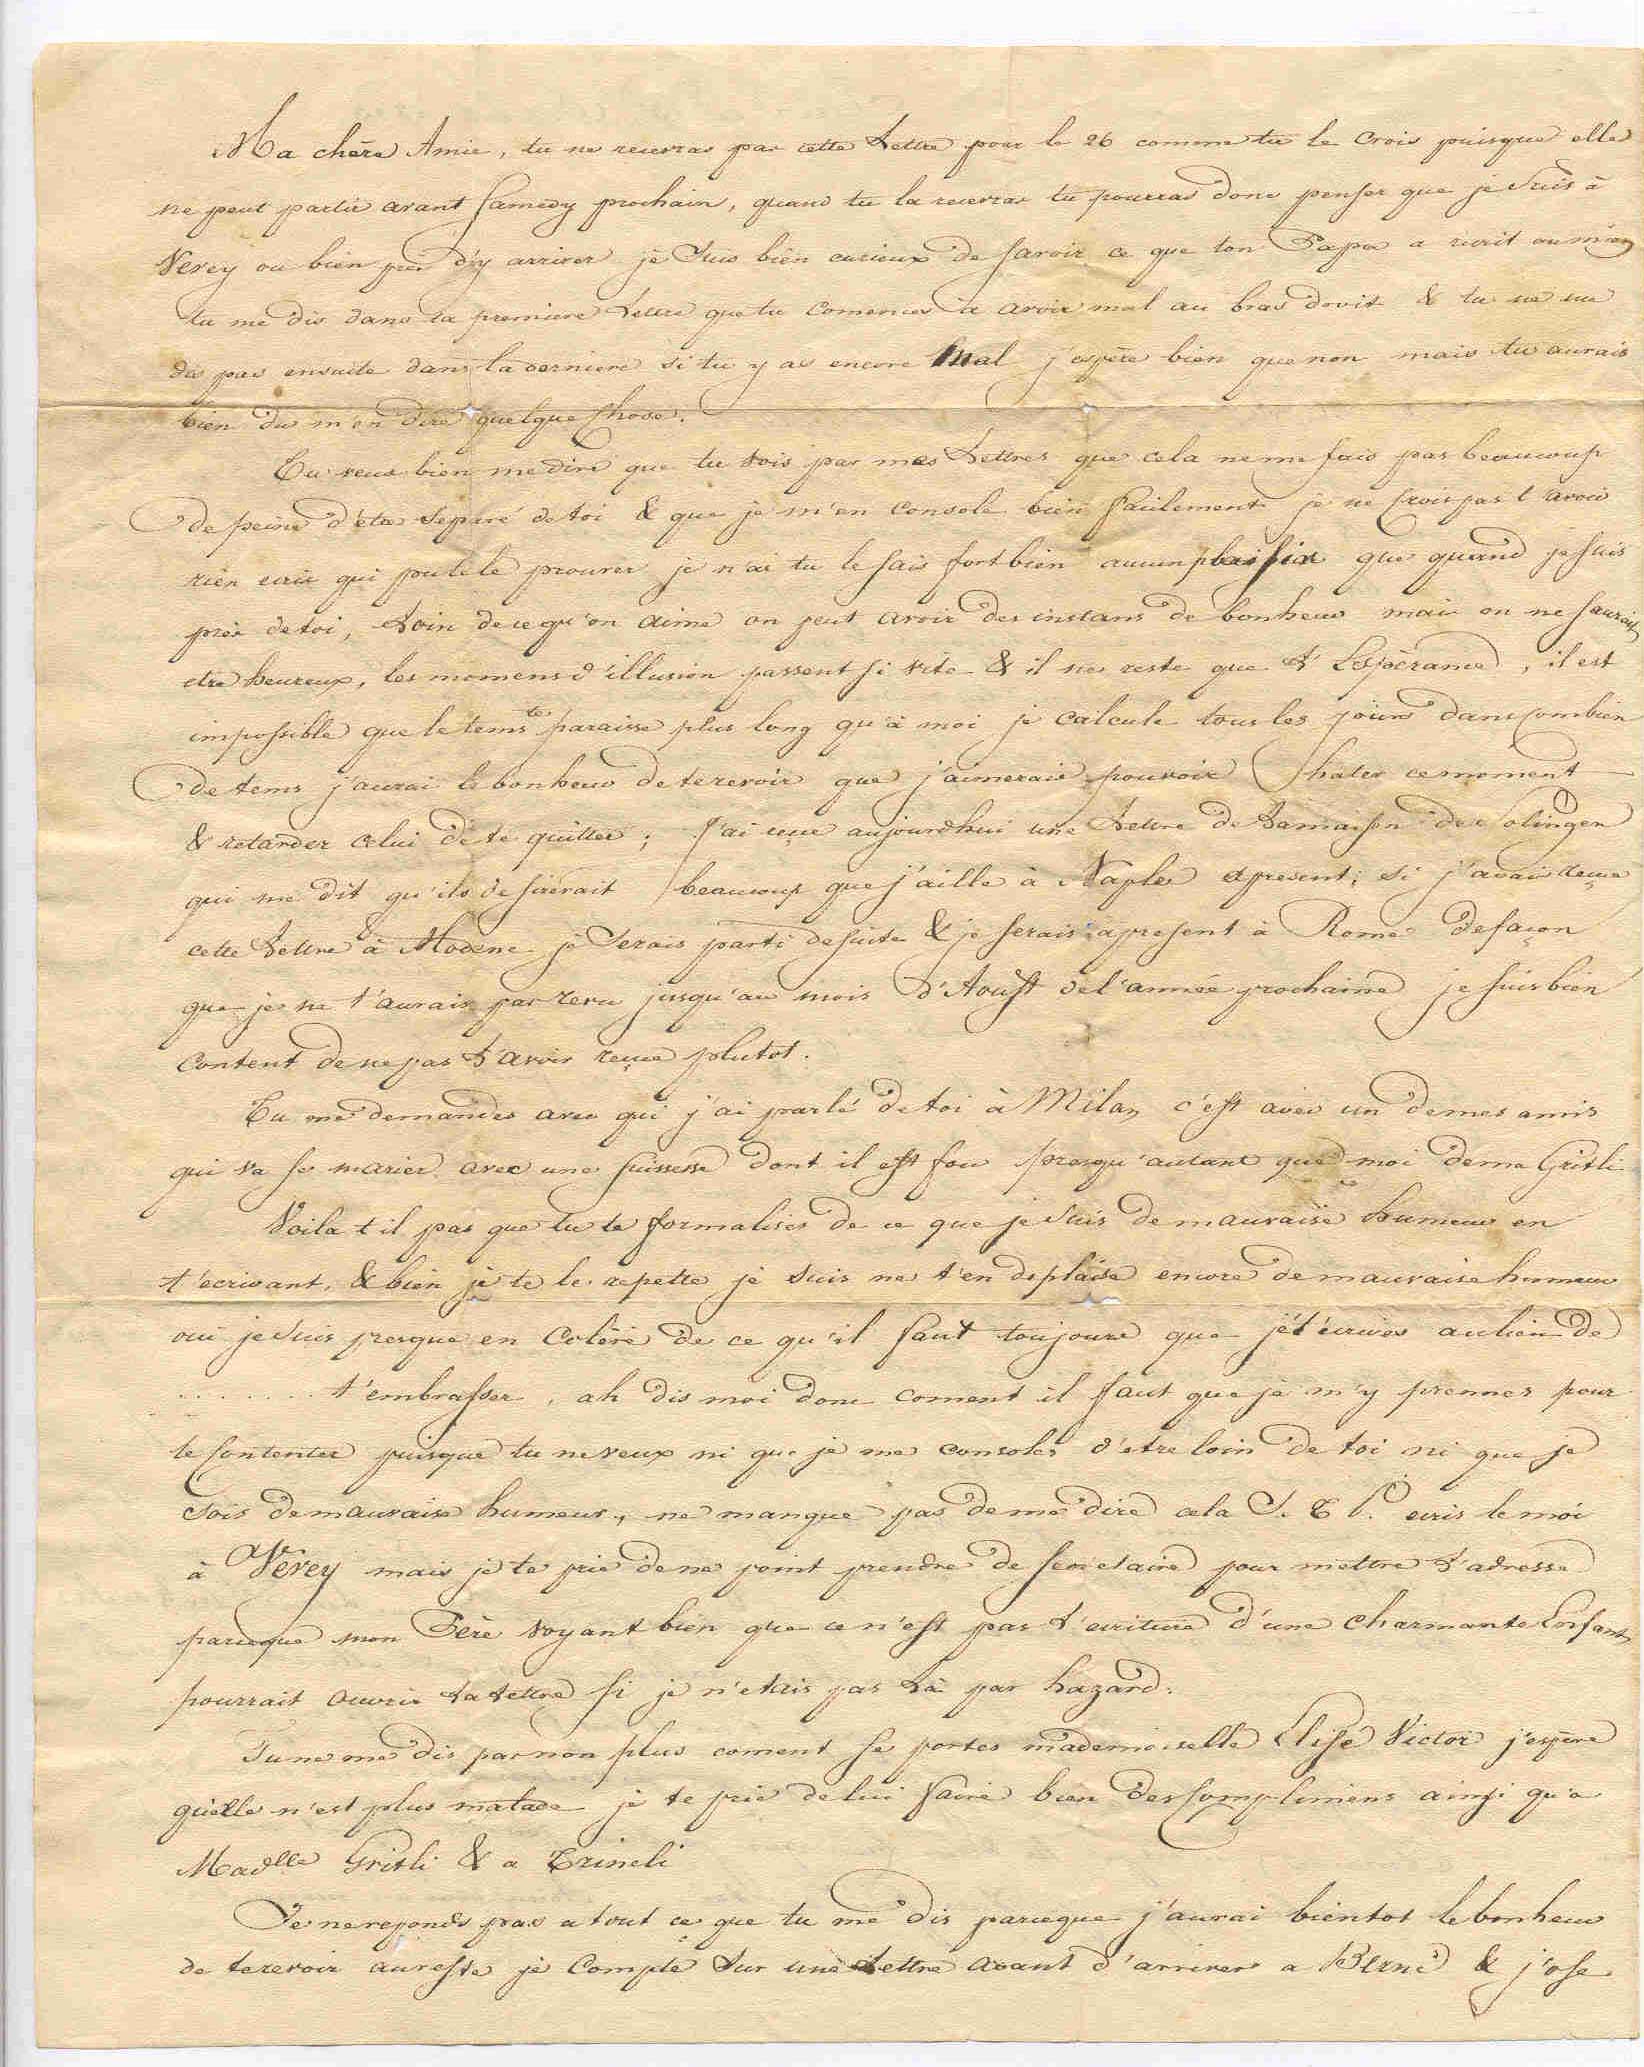 Ma chère Amie, tu ne recevras pas cette Lettre pour le 26 comme tu le Crois puisque elle
ne peut partir avant Samedy prochain, quand tu la recevras tu pourras donc penser que je suis à
Vevey ou bien près d'y arriver je suis bien curieux de savoir ce que ton Papa a ecrit au mien
tu me dis dans ta premiere Lettre que tu comences à avoir mal au bras droit & tu ne me
dis pas ensuite dans la derniere si tu y as encore mal j'espère bien que non mais tu aurais
bien du m'en dire quelque Chose.
Tu veus bien me dire que tu vois par mes Lettres que cela ne me fais pas beaucoup
de peine d'etre separé de toi & que je m'en console bien facilement je ne crois pas t'avoir
rien ecrit qui put te le prouver je n'ai tu le sais fort bien aucun plaisir que quand je suis
près de toi, Loin de ce qu'on aime on peut avoir des instans de bonheur mais on ne saurait
etre heureux, les momens d'illusion passent si vite & il ne reste que L'Espèrance, il est
impossible que le tems te paraisse plus long qu'à moi je calcule tous les jours dans combien
de tems j'aurai le bonheur de te revoir que j'aimerais pouvoir hater ce moment
& retarder celui de te quitter; j'ai reçue aujourdhui une Lettre de La maison de Solingen
qui me dit qu'ils desirerait beaucoup que j'aille à Naples apresent; si j'avais reçue
cette Lettre à Modene je serais parti de suite & je serais apresent à Rome de façon
que je ne t'aurais pas revu jusqu'au mois d'Aoust de l'année prochaine je suis bien
content de ne pas L'avoir reçue plutot.
Tu me demandes avec qui j'ai parlé de toi à Milan c'est avec un de mes amis
qui va se marier avec une suissesse dont il est fou presqu'autant que moi de ma Gritli
Voila t il pas que tu te formalises de ce que je suis de mauvaise humeur en
t'ecrivant, & bien je te le repette je suis ne t'en deplaise encore de mauvaise humeur
oui je suis presque en Colère de ce qu'il faut toujours que je t'ecrives au lieu de
. . . . . . . t'embrasser, ah dis moi donc coment il faut que je m'y prennes pour
te contenter puisque tu ne veux ni que je me consoles d'etre loin de toi ni que je
sois de mauvaise humeur, ne manque pas de me dire cela S. T. P. ecris le moi
à Vevey mais je te prie de ne point prendre de secretaire pour mettre L'adresse
parceque mon Père voyant bien que ce n'est pas L'ecriture d'une charmante Enfant
pourrait ouvrir La Lettre si je n'etais pas Là par hazard.
Tu ne me dis pas non plus coment se portes mademoiselle Elise Victor j'espère
quelle n'est plus malade je te prie de lui faire bien des Complimens ainsi qu'a
Madlle Gritli & a Trineli
Je ne reponds pas a tout ce que tu me dis parceque j'aurai bientot le bonheur
de te revoir au reste je Compte sur une Lettre avant d'arriver a Berne & j'ose